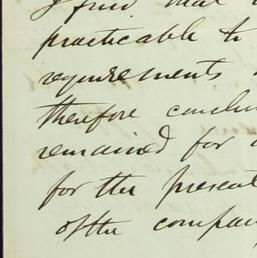 I find that
practicable to
requirements
therefore conclu
remained for
for the present
of the compan